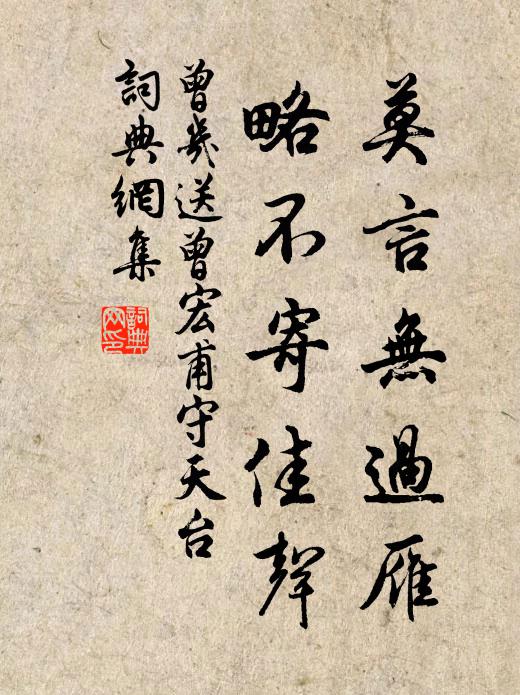 莫言無過雁
略不寄佳聲
曾幾送曾宏甫守天台
詞典網集
詞典網印